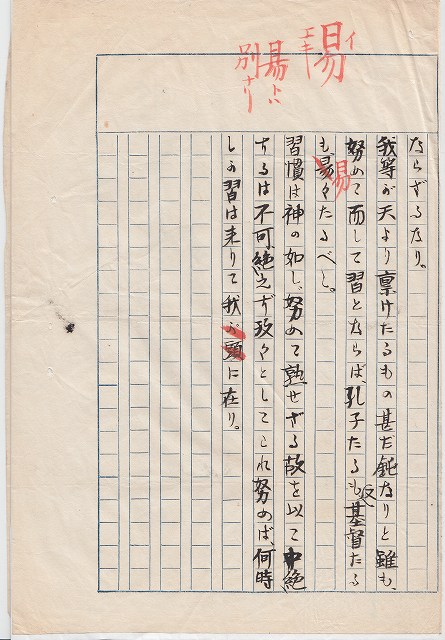 易
イ
エキ
昜トハ
別ナリ
ならざるなり。
我等が天より禀けたるもの甚だ鈍なりと雖も、
努めて而して習とならば、孔子たるも及基督たる
も、昜々たるべし。
易
習慣は神の如し、努めて熟せざる故を以て中絶
するは不可絶えず孜々としてこれ努めば、何時
しか習は来りて我が頭に在り。